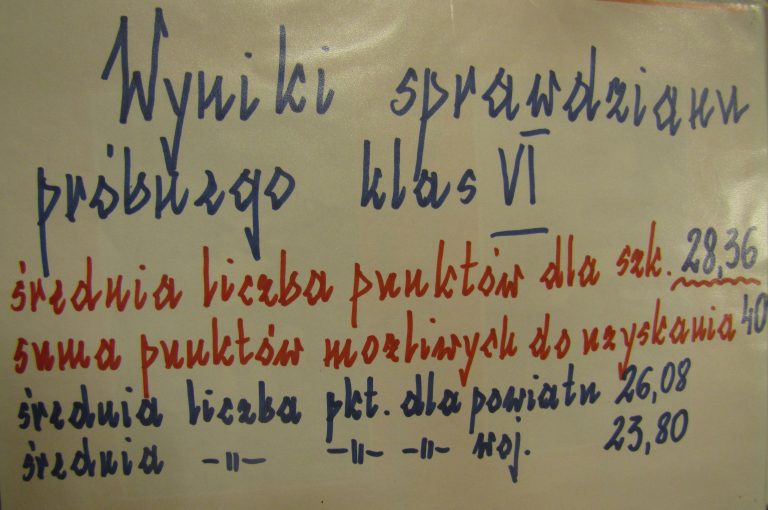 Wyniki sprawdzianu
próbnego klas VI
średnia liczba punktów dla szk. 28,36
suma punktów możliwych do uzyskania 40
średnia liczba pkt. dla powiatu 26,08
średnia -"- -"- -"- woj. 23,80